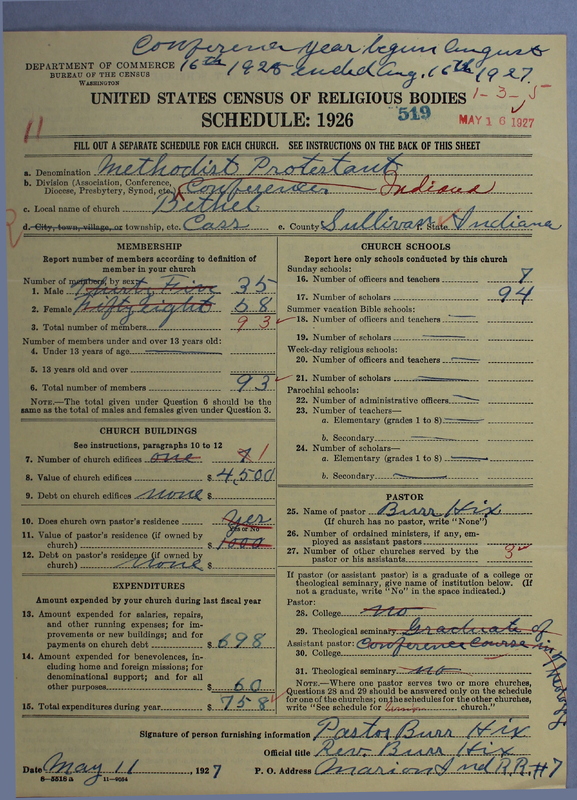 Conference year begun August
16th 1926 ended Aug. 16th 1927.
DEPARTMENT OF COMMERCE
BUREAU OF THE CENSUS
WASHINGTON
UNITED STATES CENSUS OF RELIGIOUS BODIES
1-3-5
SCHEDULE: 1926
519
MAY 16 1927
11
FILL OUT A SEPARATE SCHEDULE FOR EACH CHURCH. SEE INSTRUCTIONS ON THE BACK OF THIS SHEET
a. Denomination Methodist Protestant
b. Division (Association, Conference, Diocese, Presbytery, Synod, etc.) Conference Indiana
c. Local name of church Bethel
d. City, town, village, or township, etc. Cass e. County Sullivan f. State Indiana
MEMBERSHIP
Report number of members according to definition of
member in your church
Number of members, by sex:
1. Male Thirty Five 35
2. Female fifty eight 58
3. Total number of members 93
Number of members under and over 13 years old:
4. Under 13 years of age
5. 13 years old and over
6. Total number of members 93
NOTE.—The total given under Question 6 should be the
same as the total of males and females given under Question 3.
CHURCH BUILDINGS
See instructions, paragraphs 10 to 12
7. Number of church edifices one 1
8. Value of church edifices $ 4,500
9. Debt on church edifices none $
10. Does church own pastor's residence yes
Yes or No
11. Value of pastor's residence (if owned by
church) $ 1000
12. Debt on pastor's residence (if owned by
church) none $
EXPENDITURES
Amount expended by your church during last fiscal year
13. Amount expended for salaries, repairs,
and other running expenses; for im-
provements or new buildings; and for
payments on church debt $ 698
14. Amount expended for benevolences, in-
cluding home and foreign missions; for
denominational support; and for all
other purposes $ 60
15. Total expenditures during year $ 758
CHURCH SCHOOLS
Report here only schools conducted by this church
Sunday schools:
16. Number of officers and teachers 7
17. Number of scholars 94
Summer vacation Bible schools:
18. Number of officers and teachers
19. Number of scholars
Week-day religious schools:
20. Number of officers and teachers
21. Number of scholars
Parochial schools:
22. Number of administrative officers
23. Number of teachers—
a. Elementary (grades 1 to 8)
b. Secondary
24. Number of scholars—
a. Elementary (grades 1 to 8)
b. Secondary
PASTOR
25. Name of pastor Burr Hix
(If church has no pastor, write "None")
26. Number of ordained ministers, if any, em-
ployed as assistant pastors
27. Number of other churches served by the
pastor or his assistants 3
If pastor (or assistant pastor) is a graduate of a college or
theological seminary, give name of institution below. (If
not a graduate, write "No" in the space indicated.)
Pastor:
28. College no
29. Theological seminary Graduate of
Assistant pastor: Conference Course in Theology
30. College
31. Theological seminary no
NOTE.—Where one pastor serves two or more churches,
Questions 28 and 29 should be answered only on the schedule
for one of the churches; on the schedules for the other churches,
write "See schedule for Union church."
Signature of person furnishing information Pastor Burr Hix
Official title Rev. Burr Hix
Date May 11, 1927 P. O. Address Marion Ind R.R. #7
8—5516 a 11—4034